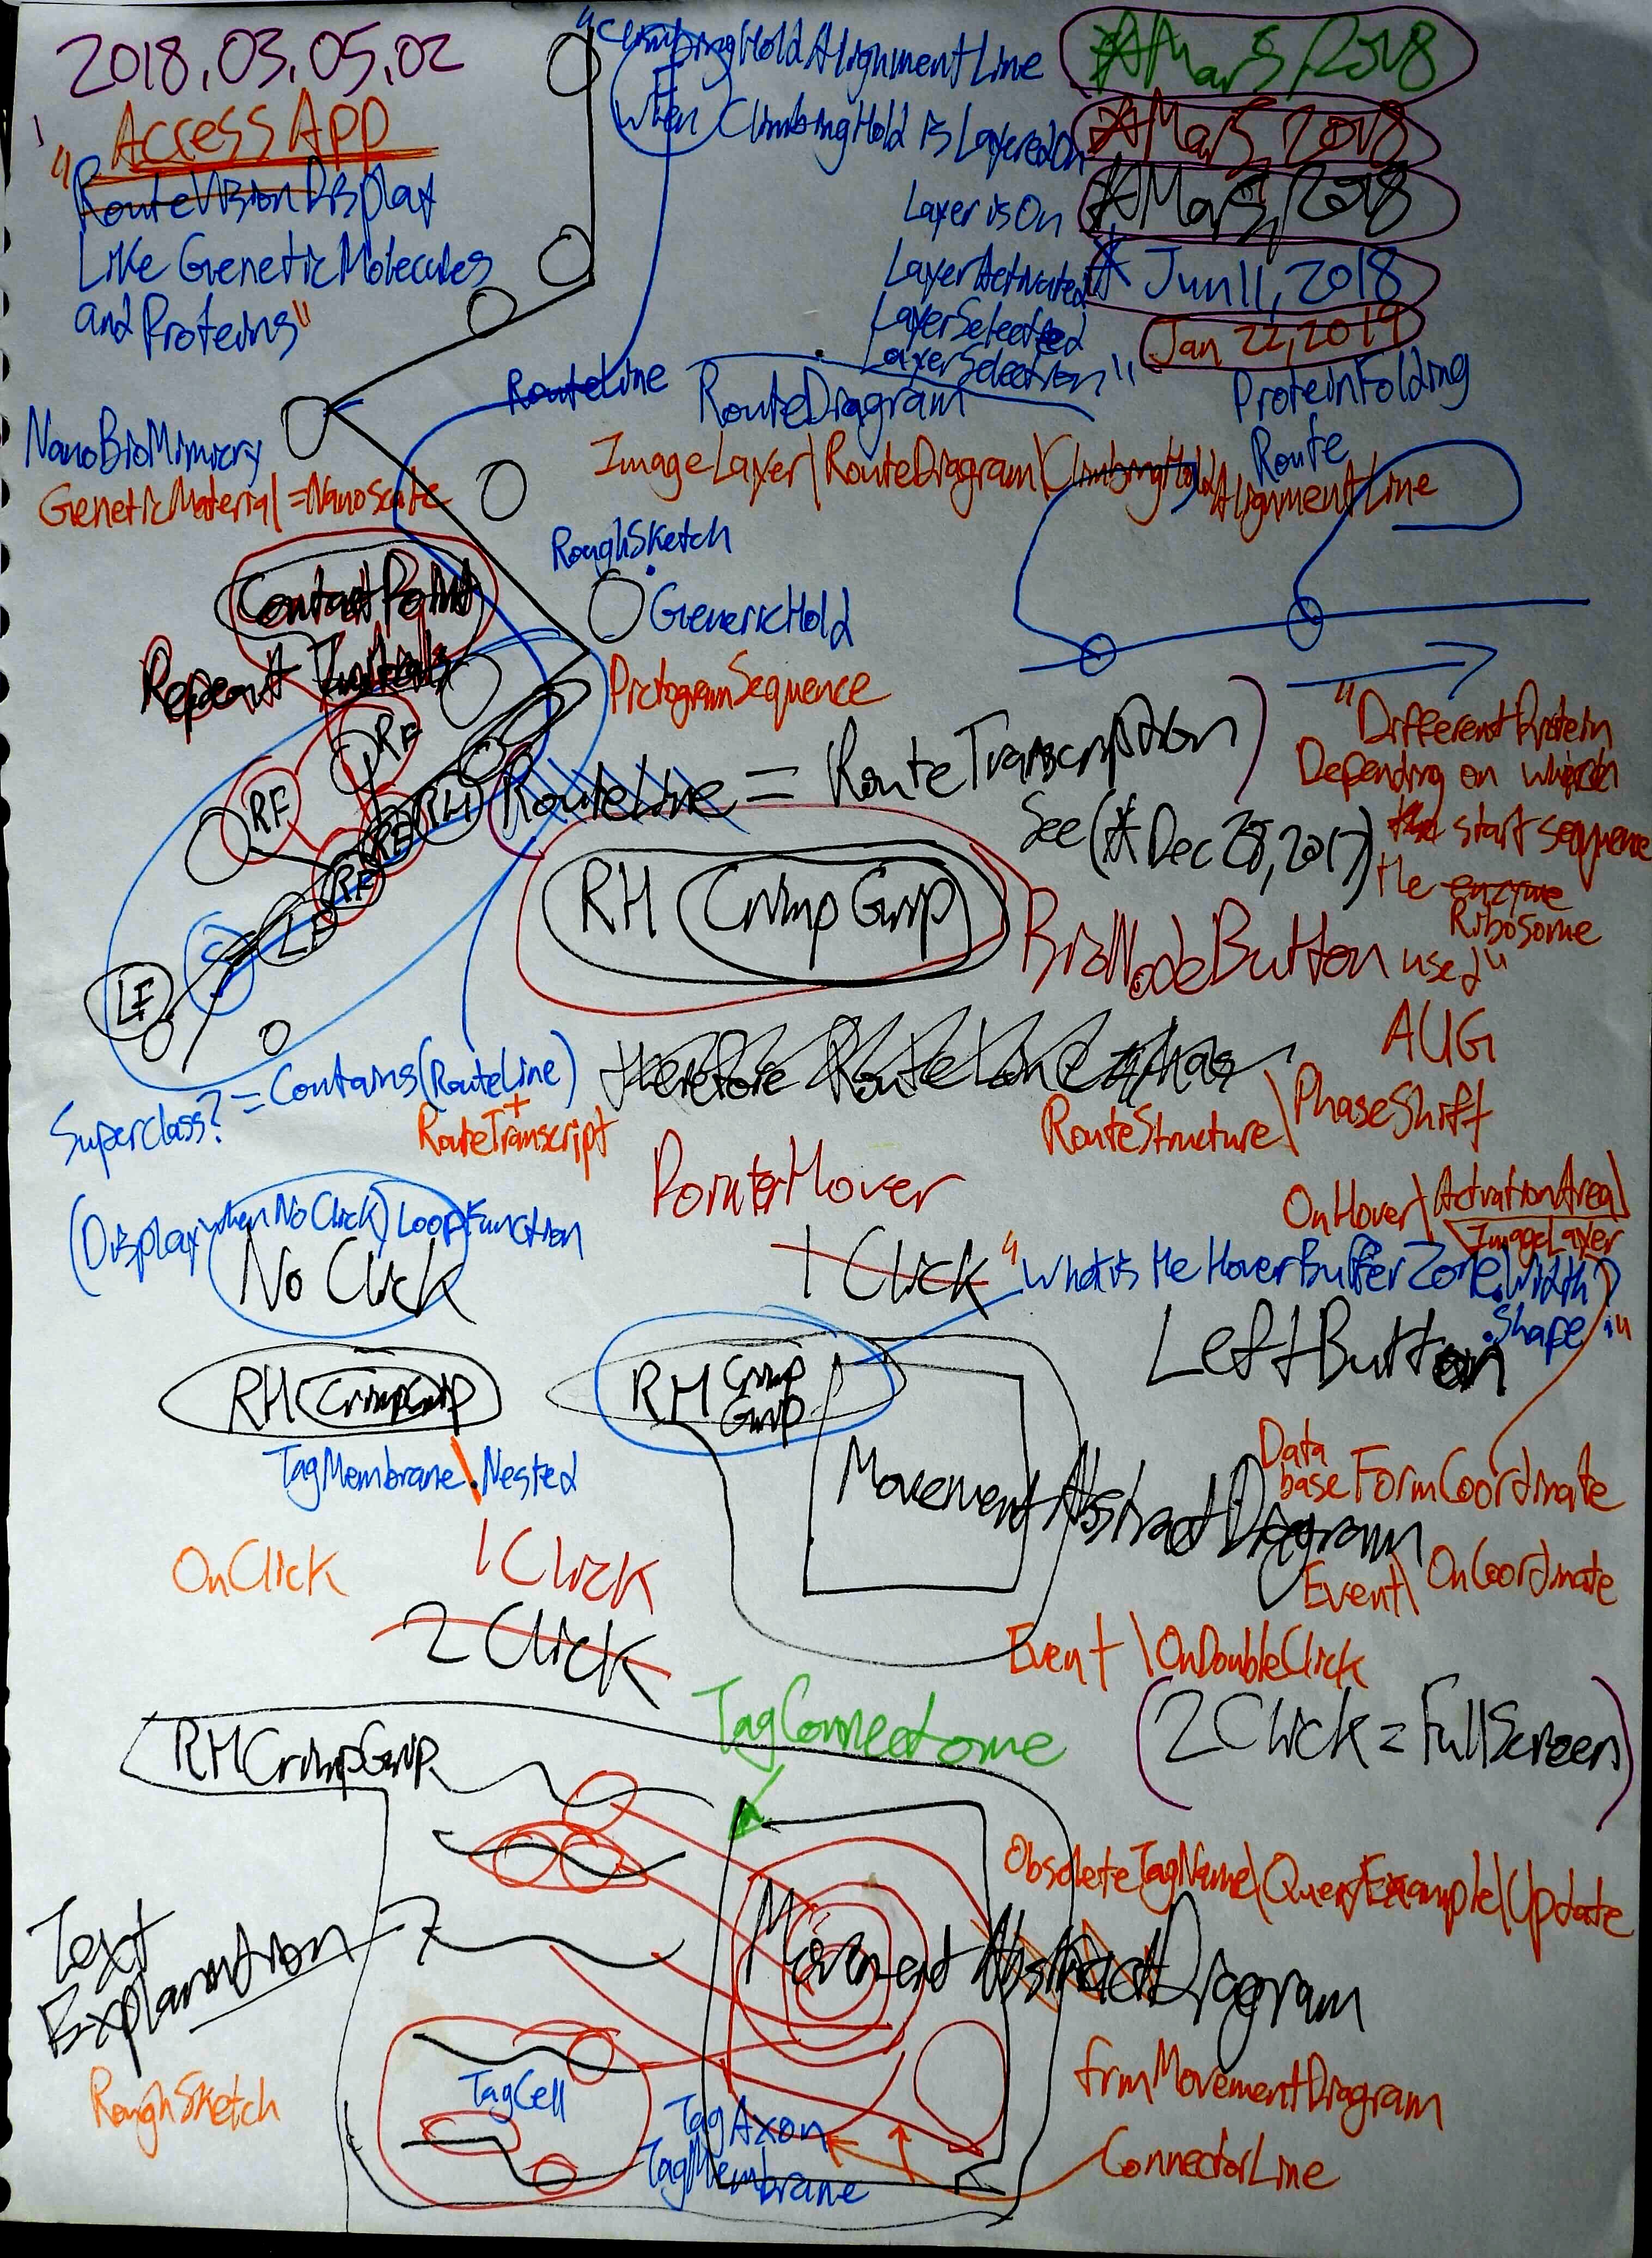 2018.03.05.02
"ClimbingHoldAlignmentLine
*Mar5, 2018
Access App
When ClimbingHold is LayeredOn
*Mar5, 2018
"RouteVisionDisplay
Like GeneticMolecules
and Proteins"
Layer is On
*Mar5, 2018
LayerActivated
* Jun11, 2018
LayerSelected
LayerSelection"
Jan 22, 2019
RouteLine
RouteDiagram
ProteinFolding
Route
NanoBioMimicry
GeneticMaterial = NanoScale
ImageLayer\RouteDiagram\ClimbingHold\AlignmentLine
RoughSketch
ContactPoint
GenericHold
Repeat Initials
PictogramSequence
RF
RF
RH
RF
RF
LF
LF
RouteLine = RouteTranscription)
See (*Dec 28, 2017)
"DifferentProtein
Depending on which
the start sequence
the enzyme
Ribosome
used"
RH CrimpGrip
BioNodeButton
AUG
PhaseShift
Superclass? = Contains(RouteLine)
+
RouteTranscript
therefore RouteLine
RouteStructure\
PointerHover
OnHover\ActivationArea\
ImageLayer
(Display when No Click) LoopFunction
No Click
1 Click
"What is the HoverBufferZone.Width?
.Shape"
LeftButton
RH CrimpGrip
RH Crimp
Grip
TagMembrane\.Nested
MovementAbstractDiagram
Data
baseFormCoordinate
Event\OnCoordinate
OnClick
1 Click
2 Click
Event\OnDoubleClick
TagConnectome
(2 Click = FullScreen)
RHCrimpGrip
ObsoleteTagName\QueryExample\Update
Text
Explanation
MovementAbstractDiagram
RoughSketch
TagCell
TagAxon
TagMembrane
frmMovementDiagram
ConnectorLine